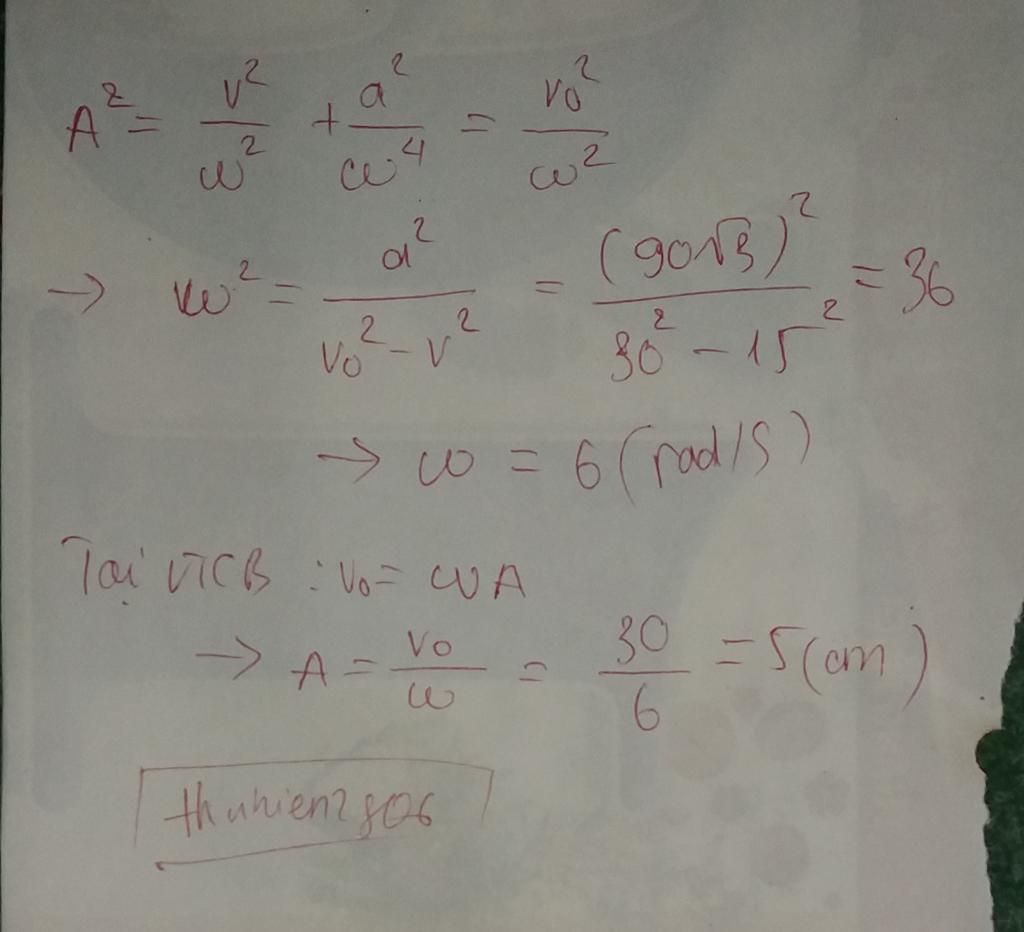 A² = v²/ω² + a²/ω⁴ = v₀²/ω²
→ ω² = a²/(v₀² - v²) = (90√3)²/(30² - 15²) = 36
→ ω = 6 (rad/s)
Tại VTCB : v₀ = ωA
→ A = v₀/ω = 30/6 = 5 (cm)
thuhien2806